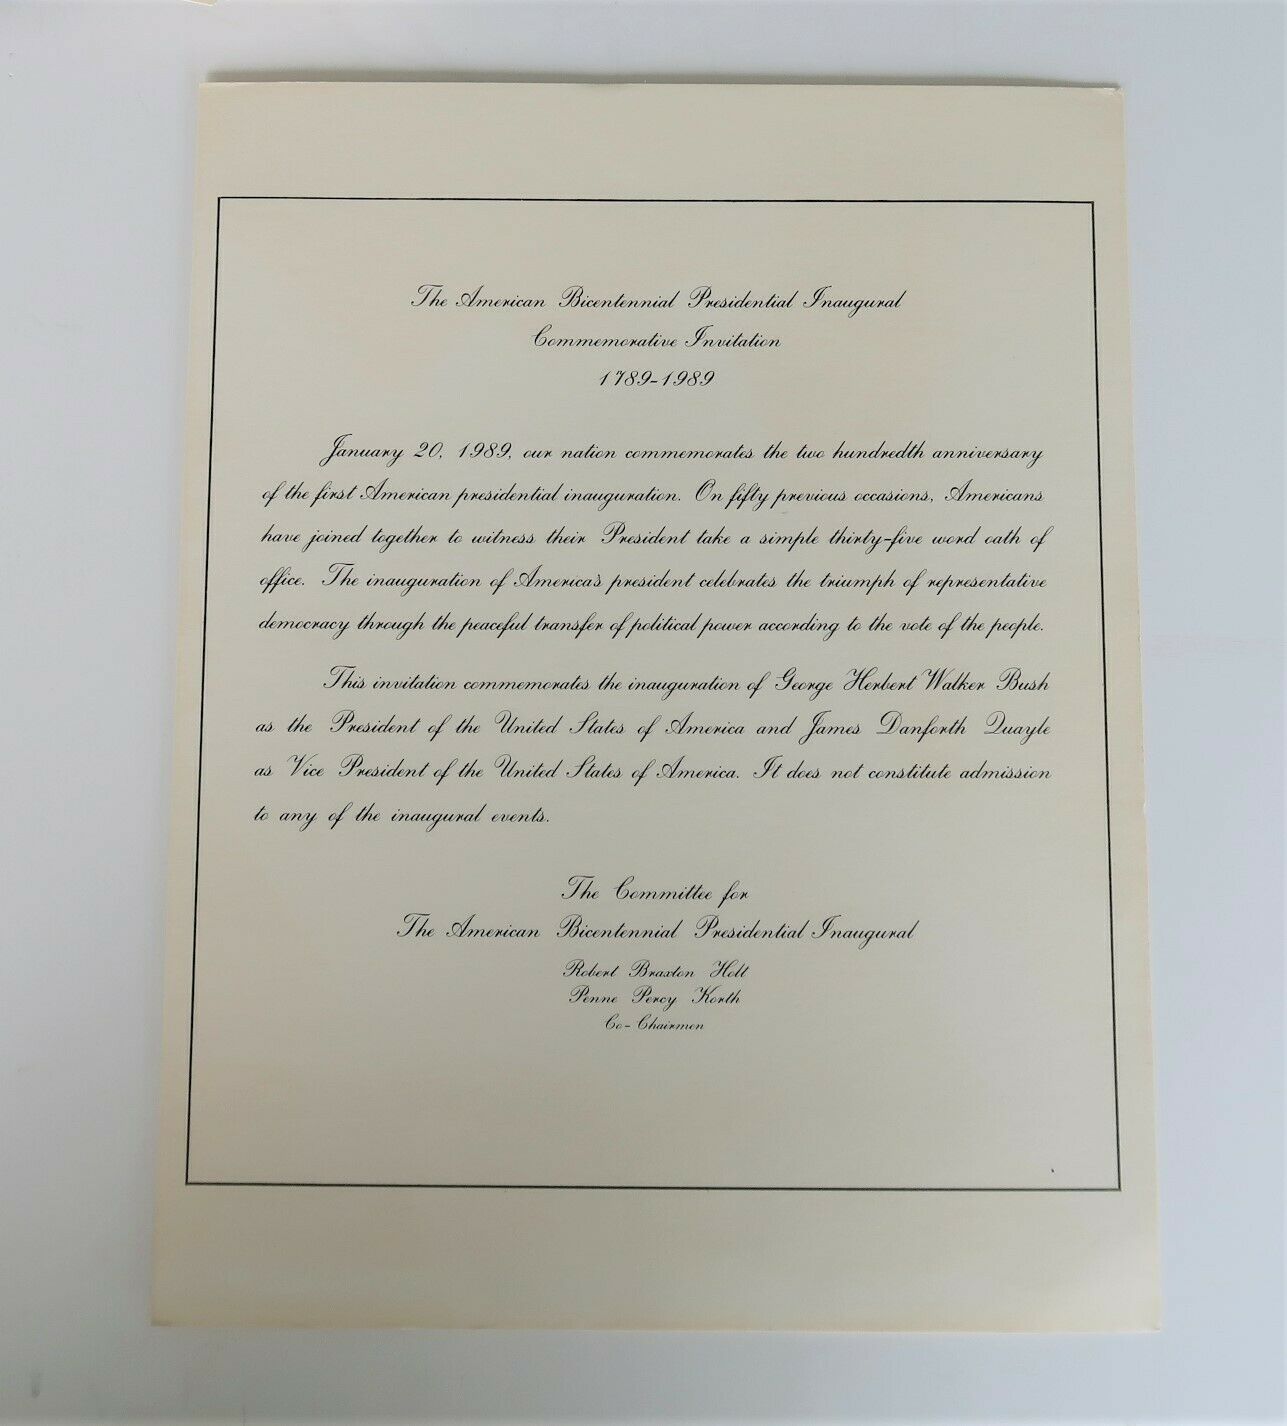 The American Bicentennial Presidential Inaugural
Commemorative Invitation
1789-1989
January 20, 1989, our nation commemorates the two hundredth anniversary
of the first American presidential inauguration. On fifty previous occasions, Americans
have joined together to witness their President take a simple thirty-five word oath of
office. The inauguration of America's president celebrates the triumph of representative
democracy through the peaceful transfer of political power according to the vote of the people.
This invitation commemorates the inauguration of George Herbert Walker Bush
as the President of the United States of America and James Danforth Quayle
as Vice President of the United States of America. It does not constitute admission
to any of the inaugural events.
The Committee for
The American Bicentennial Presidential Inaugural
Robert Braxton Holt
Penne Percy Korth
Co-Chairmen